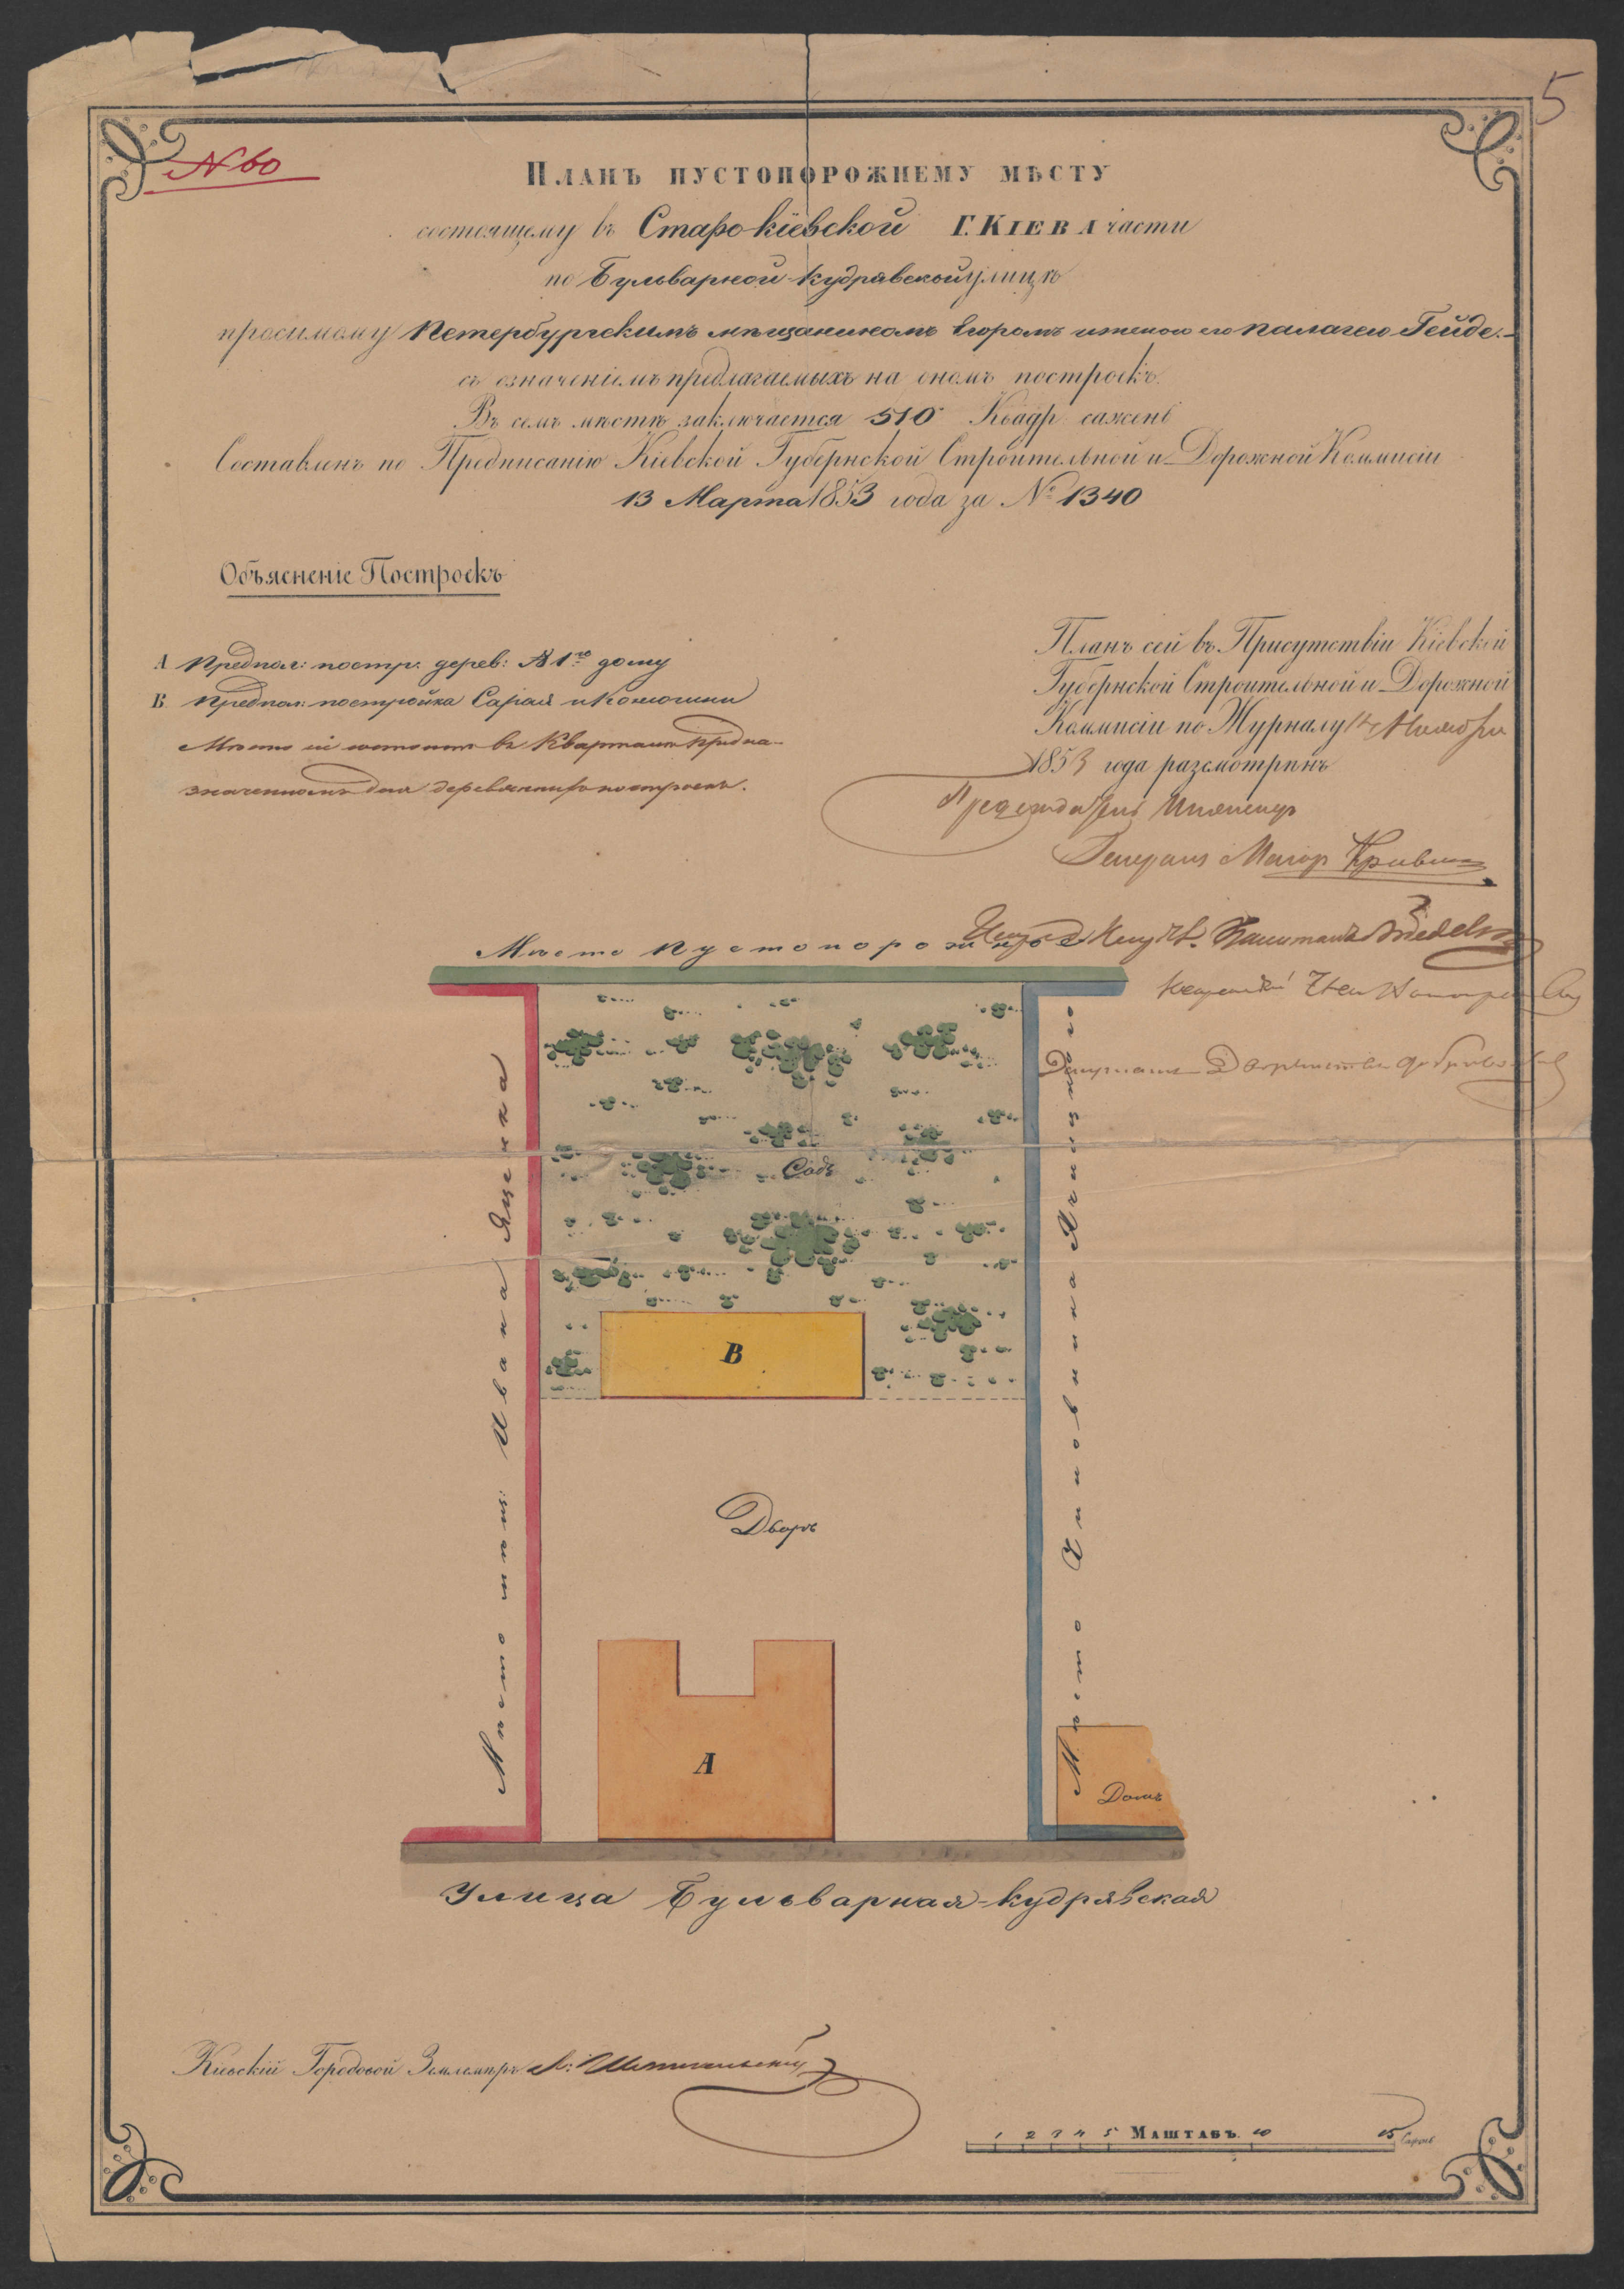 5
N 60
Планъ пустопорожнему мѣсту
состоящему въ Старо-кіевской Г. Кіева части
по Бульварной-кудрявской улицѣ
просимому Петербургскимъ мѣщаниномъ Егоромъ и женою его Палагею Гейде.
съ означеніемъ предлагаемыхъ на ономъ построекъ.
Въ семъ мѣстѣ заключается 510 Квадр. сажень
Составленъ по Предписанію Кіевской Губернской Строительной и Дорожной Коммисіи
13 Марта 1853 года за № 1340
Объясненіе Построекъ
А Предпол: постр: дерев: дому
В. Предпол: постройка Сарая и Конюшни
Мѣсто сіе состоитъ въ Кварталѣ предна-
значенномъ для деревянныхъ построекъ.
Планъ сей въ Присутствіи Кіевской
Губернской Строительной и Дорожной
Коммисіи по Журналу
1853 года разсмотрѣнъ
Предсѣдатель Инженеръ
Генералъ Маіоръ
Капитанъ
Депутатъ Дворянства
Мѣсто пустопорожнѣе
Мѣсто мѣщ: Ивана Яценка
Мѣсто Чиновника
Садъ
В
Дворъ
А
Домъ
Улица Бульварная-кудрявская
Кіевскій Городовой Землемѣръ
1 2 3 4 5 Маштабъ. 10 15 Сажень